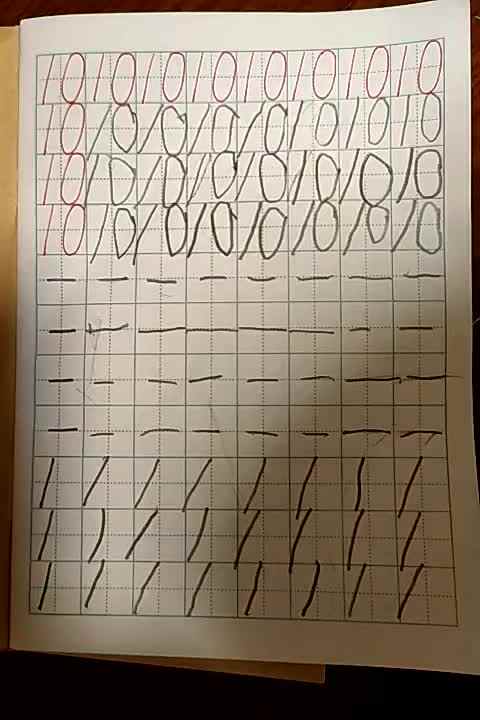 10 10 10 10 10 10 10 10
10 10 10 10 10 10 10 10
10 10 10 10 10 10 10 10
10 10 10 10 10 10 10 10
一 一 一 一 一 一 一 一
一 一 一 一 一 一 一 一
一 一 一 一 一 一 一 一
一 一 一 一 一 一 一 一
/ / / / / / / /
/ / / / / / / /
/ / / / / / / /